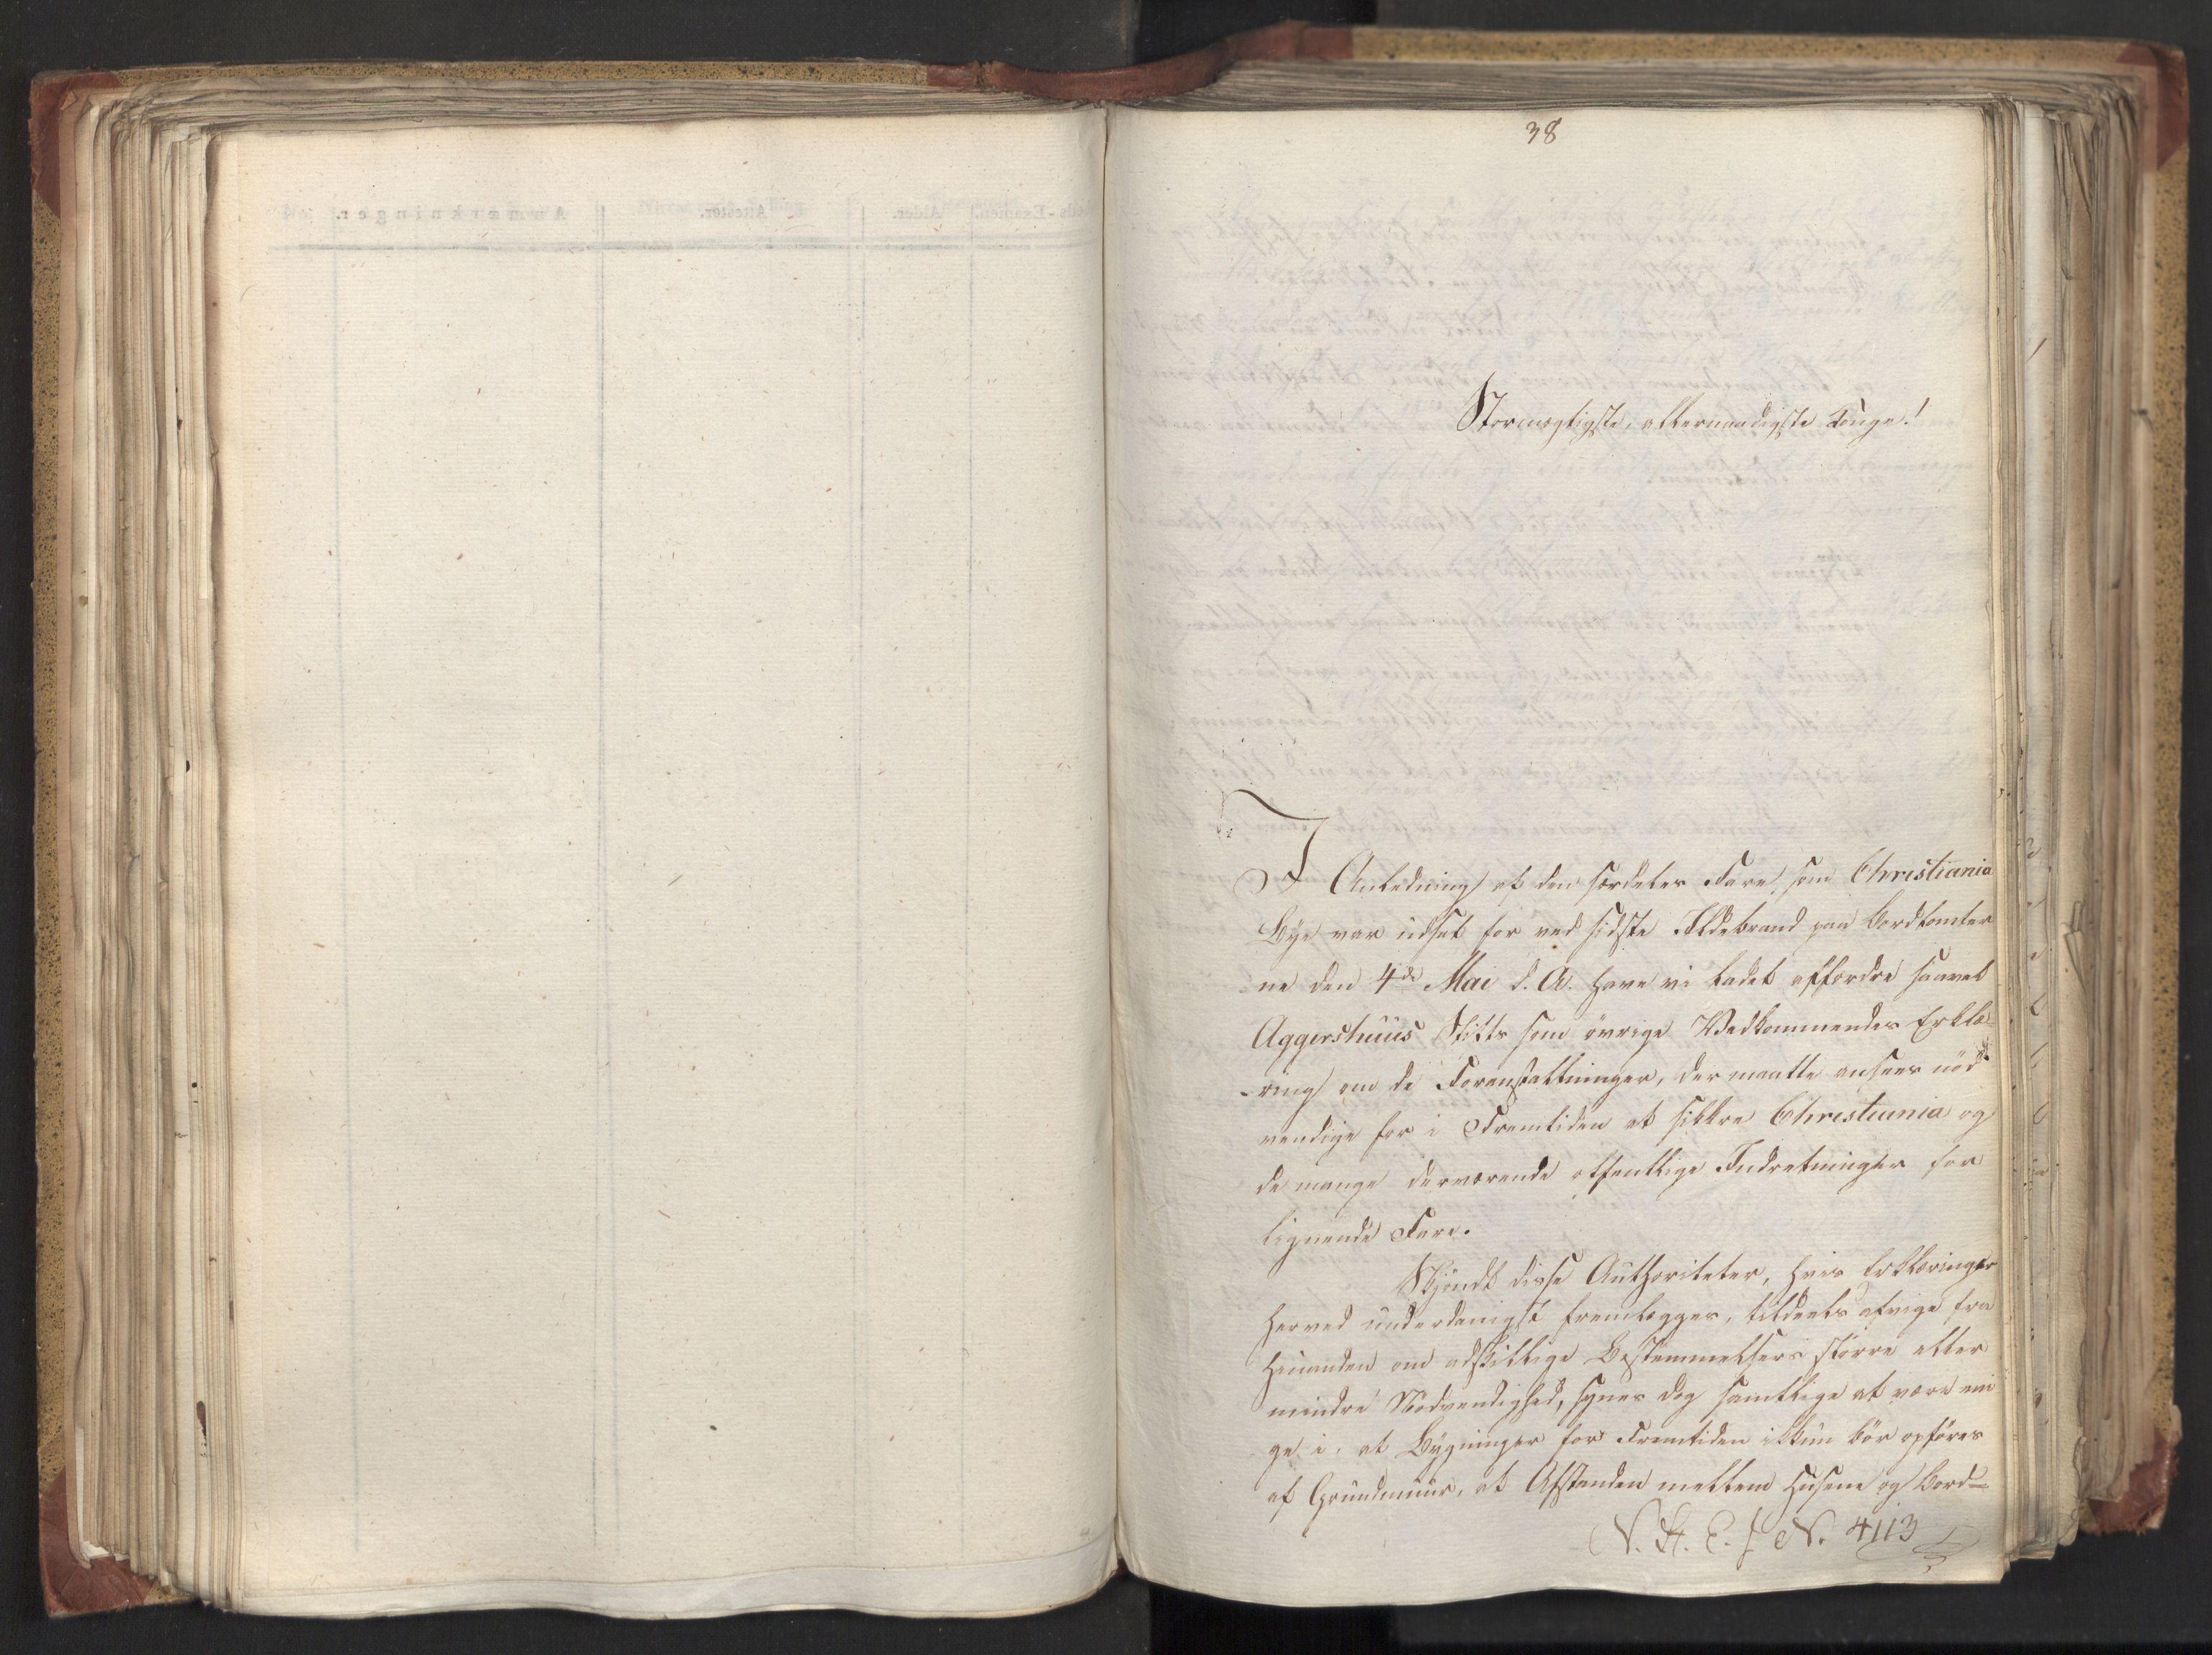 38
Stormægtigste, allernaadigste Konge!
I Anledning af den særdeles Fare, som Christiania
Bye var udsat for ved sidste Ildebrand paa Bordtomter
ne den 4de Mai d. A. have vi ladet affordre saavel
Aggershuus Stifts som övrige Vedkommendes Erklæ-
-ring om de Foranstaltninger, der maatte ansees nöd
vendige for i Fremtiden at sikkre Christiania og
de mange derværende offentlige Indretninger for
lignende Fare.
Skjöndt disse Authoriteter, hvis Erklæringer
herved underdanigst fremlægges, tildeels afvige fra
hinanden om adskillige Bestemmelsers större eller
mindre Nödvendighed, synes dog samtlige at være eni
ge i, at Bygninger for Fremtiden ikkun bör opföres
af Grundmuur, at Afstanden mellem Husene og Bord-
N. 4113